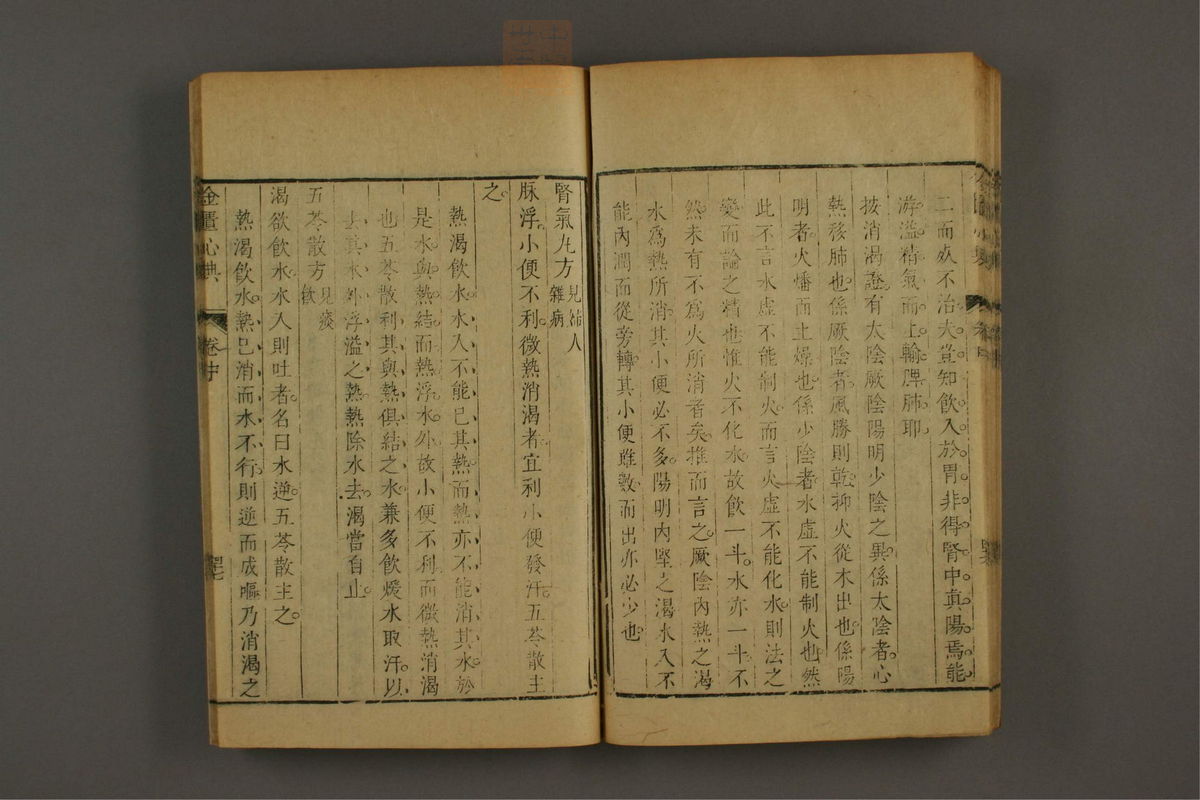 二而致不治夫豈知飲入於胃非得腎中真陽焉能
游溢精氣而上輸脾肺耶
按消渴證有太陰厥陰陽明少陰之異係太陰者心
熱移肺也係厥陰者風勝則乾抑火從木出也係陽
明者火燔而土燥也係少陰者水虛不能制火也然
此不言水虛不能制火而言火虛不能化水則法之
變而論之精也惟火不化水故飲一斗水亦一斗不
然未有不爲火所消者矣推而言之厥陰內熱之渴
水爲熱所消其小便必不多陽明內堅之渴水入不
能內潤而從旁轉其小便雖數而出亦必少也
腎氣丸方 見婦人雜病
脉浮小便不利微熱消渴者宜利小便發汗五苓散主
之
熱渴飲水水入不能已其熱而熱亦不能消其水於
是水與熱結而熱浮水外故小便不利而微熱消渴
也五苓散利其與熱俱結之水兼多飲煖水取汗以
去其水外浮溢之熱熱除水去渴當自止
五苓散方 見痰飲
渴欲飲水水入則吐者名曰水逆五苓散主之
熱渴飲水熱已消而水不行則逆而成嘔乃消渴之
金匱心典 卷中